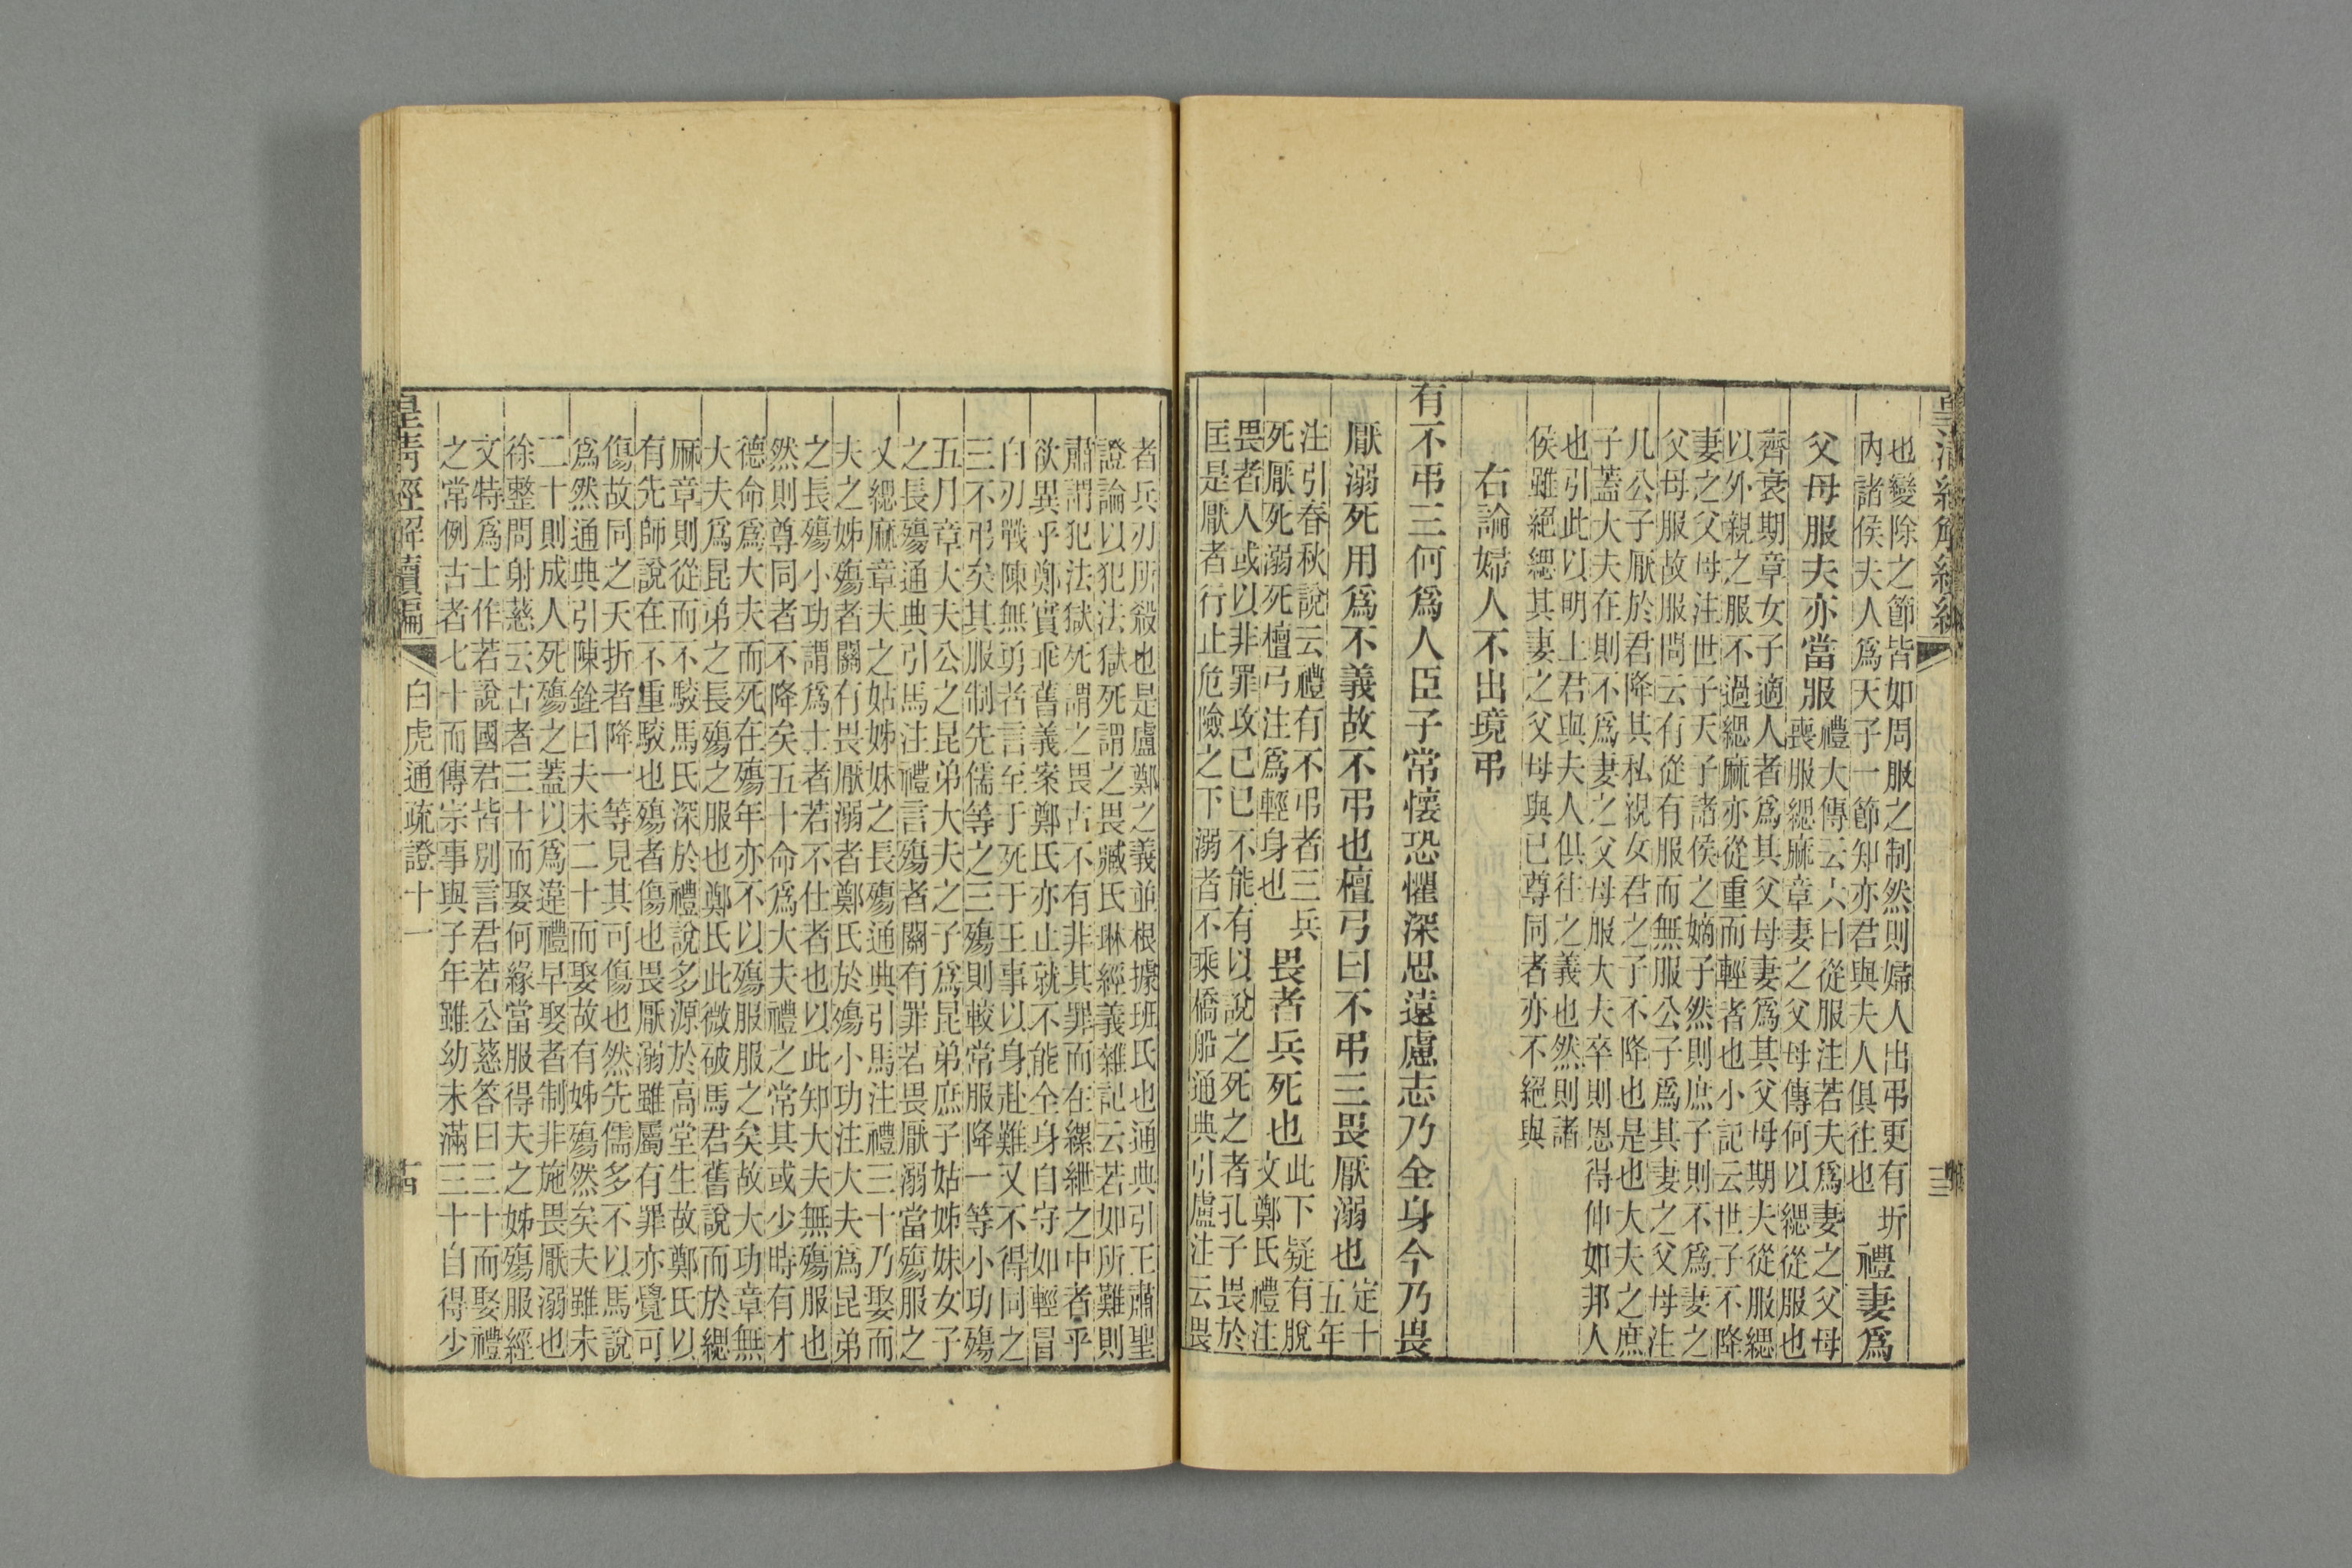 皇清經解續編
十三
也變除之節皆如周服之制然則婦人出弔更有圻
內諸侯夫人爲天子一節知亦君與夫人俱往也
禮妻爲
父母服夫亦當服
禮大傳云六曰從服注若夫爲妻之父母
喪服緦麻章妻之父母傳何以緦從服也
齊衰期章女子適人者爲其父母妻爲其父母期夫從服緦
以外親之服不過緦麻亦從重而輕者也小記云世子不降
妻之父母注世子天子諸侯之嫡子然則庶子則不爲妻之
父母服故服問云有從有服而無服公子爲其妻之父母注
凡公子厭於君降其私親女君之子不降也是也大夫之庶
子蓋大夫在則不爲妻之父母服大夫卒則恩得伸如邦人
也引此以明上君與夫人俱往之義也然則諸
侯雖絕緦其妻之父母與已尊同者亦不絕與
右論婦人不出境弔
有不弔三何爲人臣子常懷恐懼深思遠慮志乃全身今乃畏
厭溺死用爲不義故不弔也檀弓曰不弔三畏厭溺也
定十
五年
注引春秋說云禮有不弔者三兵
死厭死溺死檀弓注爲輕身也
畏者兵死也
此下疑有脫
文鄭氏禮注
畏者人或以非罪攻己已不能有以說之死之者孔子畏於
匡是厭者行止危險之下溺者不乘橋船通典引盧注云畏
者兵刃所殺也是盧鄭之義並根據班氏也通典引王肅聖
證論以犯法獄死謂之畏臧氏琳經義雜記云若如所難則
肅謂犯法獄死謂之畏古不有非其罪而在縲紲之中者乎
欲異乎鄭實乖舊義案鄭氏亦止就不能全身自守如輕冒
白刃戰陳無勇者言至于死于王事以身赴難又不得同之
三不弔矣其服制先儒等之三殤則較常服降一等小功殤
五月章大夫公之昆弟大夫之子爲昆弟庶子姑姊妹女子
之長殤通典引馬注禮言殤者關有罪若畏厭溺當殤服之
又緦麻章夫之姑姊妹之長殤通典引馬注禮三十乃娶而
夫之姊殤者關有畏厭溺者鄭氏於殤小功注大夫爲昆弟
之長殤小功謂爲士者若不仕者也以此知大夫無殤服也
然則尊同者不降矣五十命爲大夫禮之常其或少時有才
德命爲大夫而死在殤年亦不以殤服服之矣故大功章無
大夫爲昆弟之長殤之服也鄭氏此微破馬君舊說而於緦
麻章則從而不駮馬氏深於禮說多源於高堂生故鄭氏以
有先師說在不重駮也殤者傷也畏厭溺雖屬有罪亦覺可
傷故同之夭折者降一等見其可傷也然先儒多不以馬說
爲然通典引陳銓曰夫未二十而娶故有姊殤然矣夫雖未
二十則成人死殤之蓋以爲違禮早娶者制非施畏厭溺也
徐整問射慈云古者三十而娶何緣當服得夫之姊殤服經
文特爲士作若說國君皆別言君若公慈答曰三十而娶禮
之常例古者七十而傳宗事與子年雖幼未滿三十自得少
皇清經解續編
白虎通疏證十一
十四